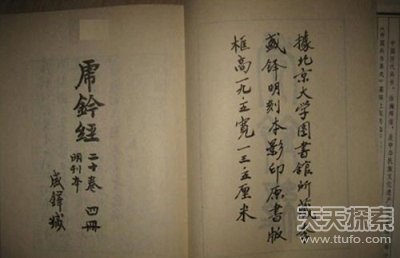 據北京大学图書館所藏李
盛铎明刻本影印原書版
框高一九·五寬一三·五厘米
虎鈐經
二十卷 四冊
明刊本
盛鐸臧
天天探索
www.ttufo.com